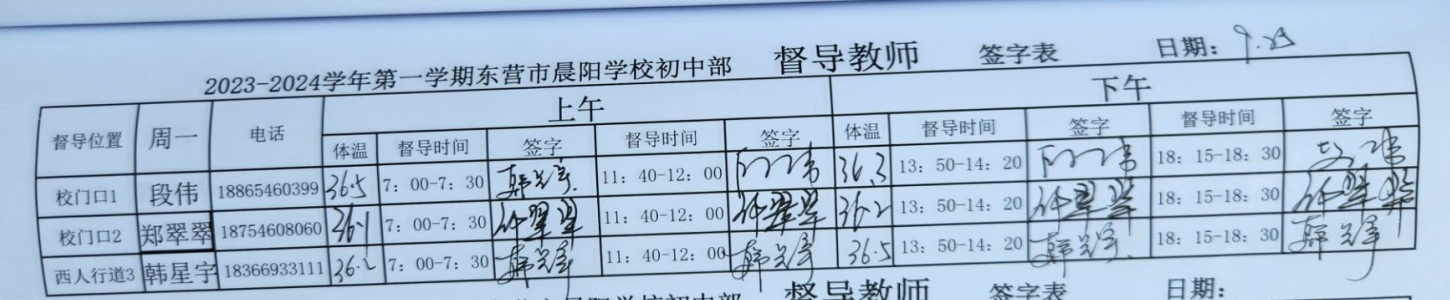 2023-2024学年第一学期东营市晨阳学校初中部 督导教师 签字表 日期：9.25
督导位置 周一 电话 上午 下午
体温 督导时间 签字 督导时间 签字 体温 督导时间 签字 督导时间 签字
校门口1 段伟 18865460399 36.5 7：00-7：30 韩星宇 11：40-12：00 36.3 13：50-14：20 18：15-18：30
校门口2 郑翠翠 18754608060 36.1 7：00-7：30 郑翠翠 11：40-12：00 郑翠翠 36.2 13：50-14：20 郑翠翠 18：15-18：30 郑翠翠
西人行道3 韩星宇 18366933111 36.2 7：00-7：30 韩星宇 11：40-12：00 韩星宇 36.5 13：50-14：20 韩星宇 18：15-18：30 韩星宇
晨阳学校初中部 督导教师 签字表 日期：